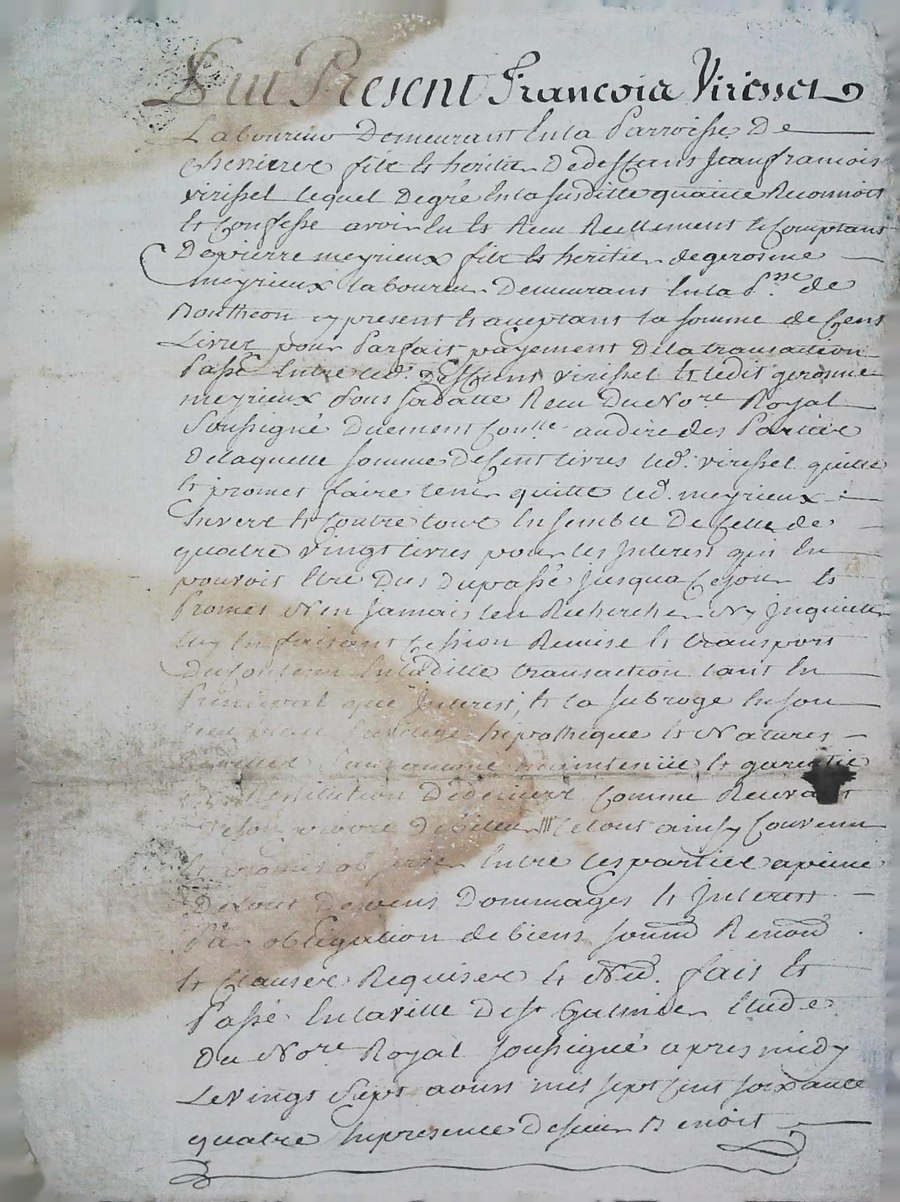 Fut Present François Viressel
Laboureur Demeurant En la Parroisse De
Cherieres filz et heritier De deffunt Jean françois
viressel lequel De gré En la susditte quallité Reconnoit
et Confesse avoir Eu et Receu Reellement et Comptant
De pierre meyrieux filz et heritier de gerosme
meyrieux laboureur Demeurant En la p.sse de
Bontheon cy present et acceptant la somme de Cent
Livres pour parfait payement De la transaction
Passé Entre led. Deffunt viressel et ledit gerosme
meyrieux sous sa datte Receu Du No.re Royal
Soussigné Duement Con.llé au dire des Parties
De laquelle somme De Cent livres led. viressel quitte
et promet faire tenir quitte led. meyrieux
Envers et Contre tous Ensemble De Celle de
quatre vingt livres pour les Interest qui En
pouvoit Etre Dus Du passé Jusqua Ce Jour et
Promet N'en Jamais Rechercher Ny Inquietter
luy En faisant Cession Remise et transport
Du Contenu En laditte transaction tant En
Principal que Interest, et la subroge En son
lieu place hipotheque et Natures
maintenüe et garentie
Restitution De deniers Comme Recevant
le tout ainsy Convenu
et promis observer Entre les parties a peine
De tous Depens Dommages et Interest
Par obligation de biens soum.ons Renon.ons
et Clauses Requises et fait et
Passé En la ville De s.t Galmier Etude
Du No.re Royal soussigné apres midy
Le vingt Sept aoust mil sept cent soixante
quatre En presence De sieur Benoit